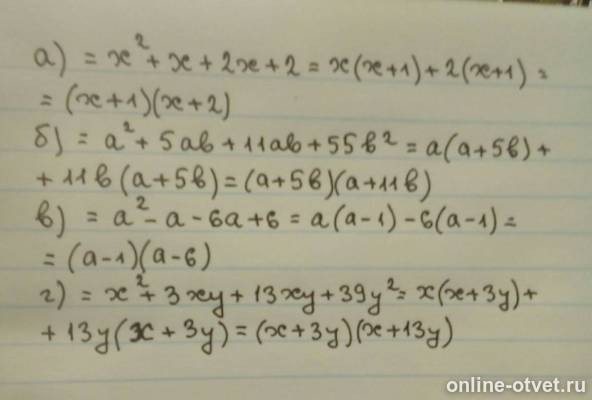 а) = x² + x + 2x + 2 = x(x+1) + 2(x+1) =
= (x+1)(x+2)
б) = a² + 5ab + 11ab + 55b² = a(a+5b) +
+ 11b(a+5b) = (a+5b)(a+11b)
в) = a² - a - 6a + 6 = a(a-1) - 6(a-1) =
= (a-1)(a-6)
г) = x² + 3xy + 13xy + 39y² = x(x+3y) +
+ 13y(x+3y) = (x+3y)(x+13y)
online-otvet.ru